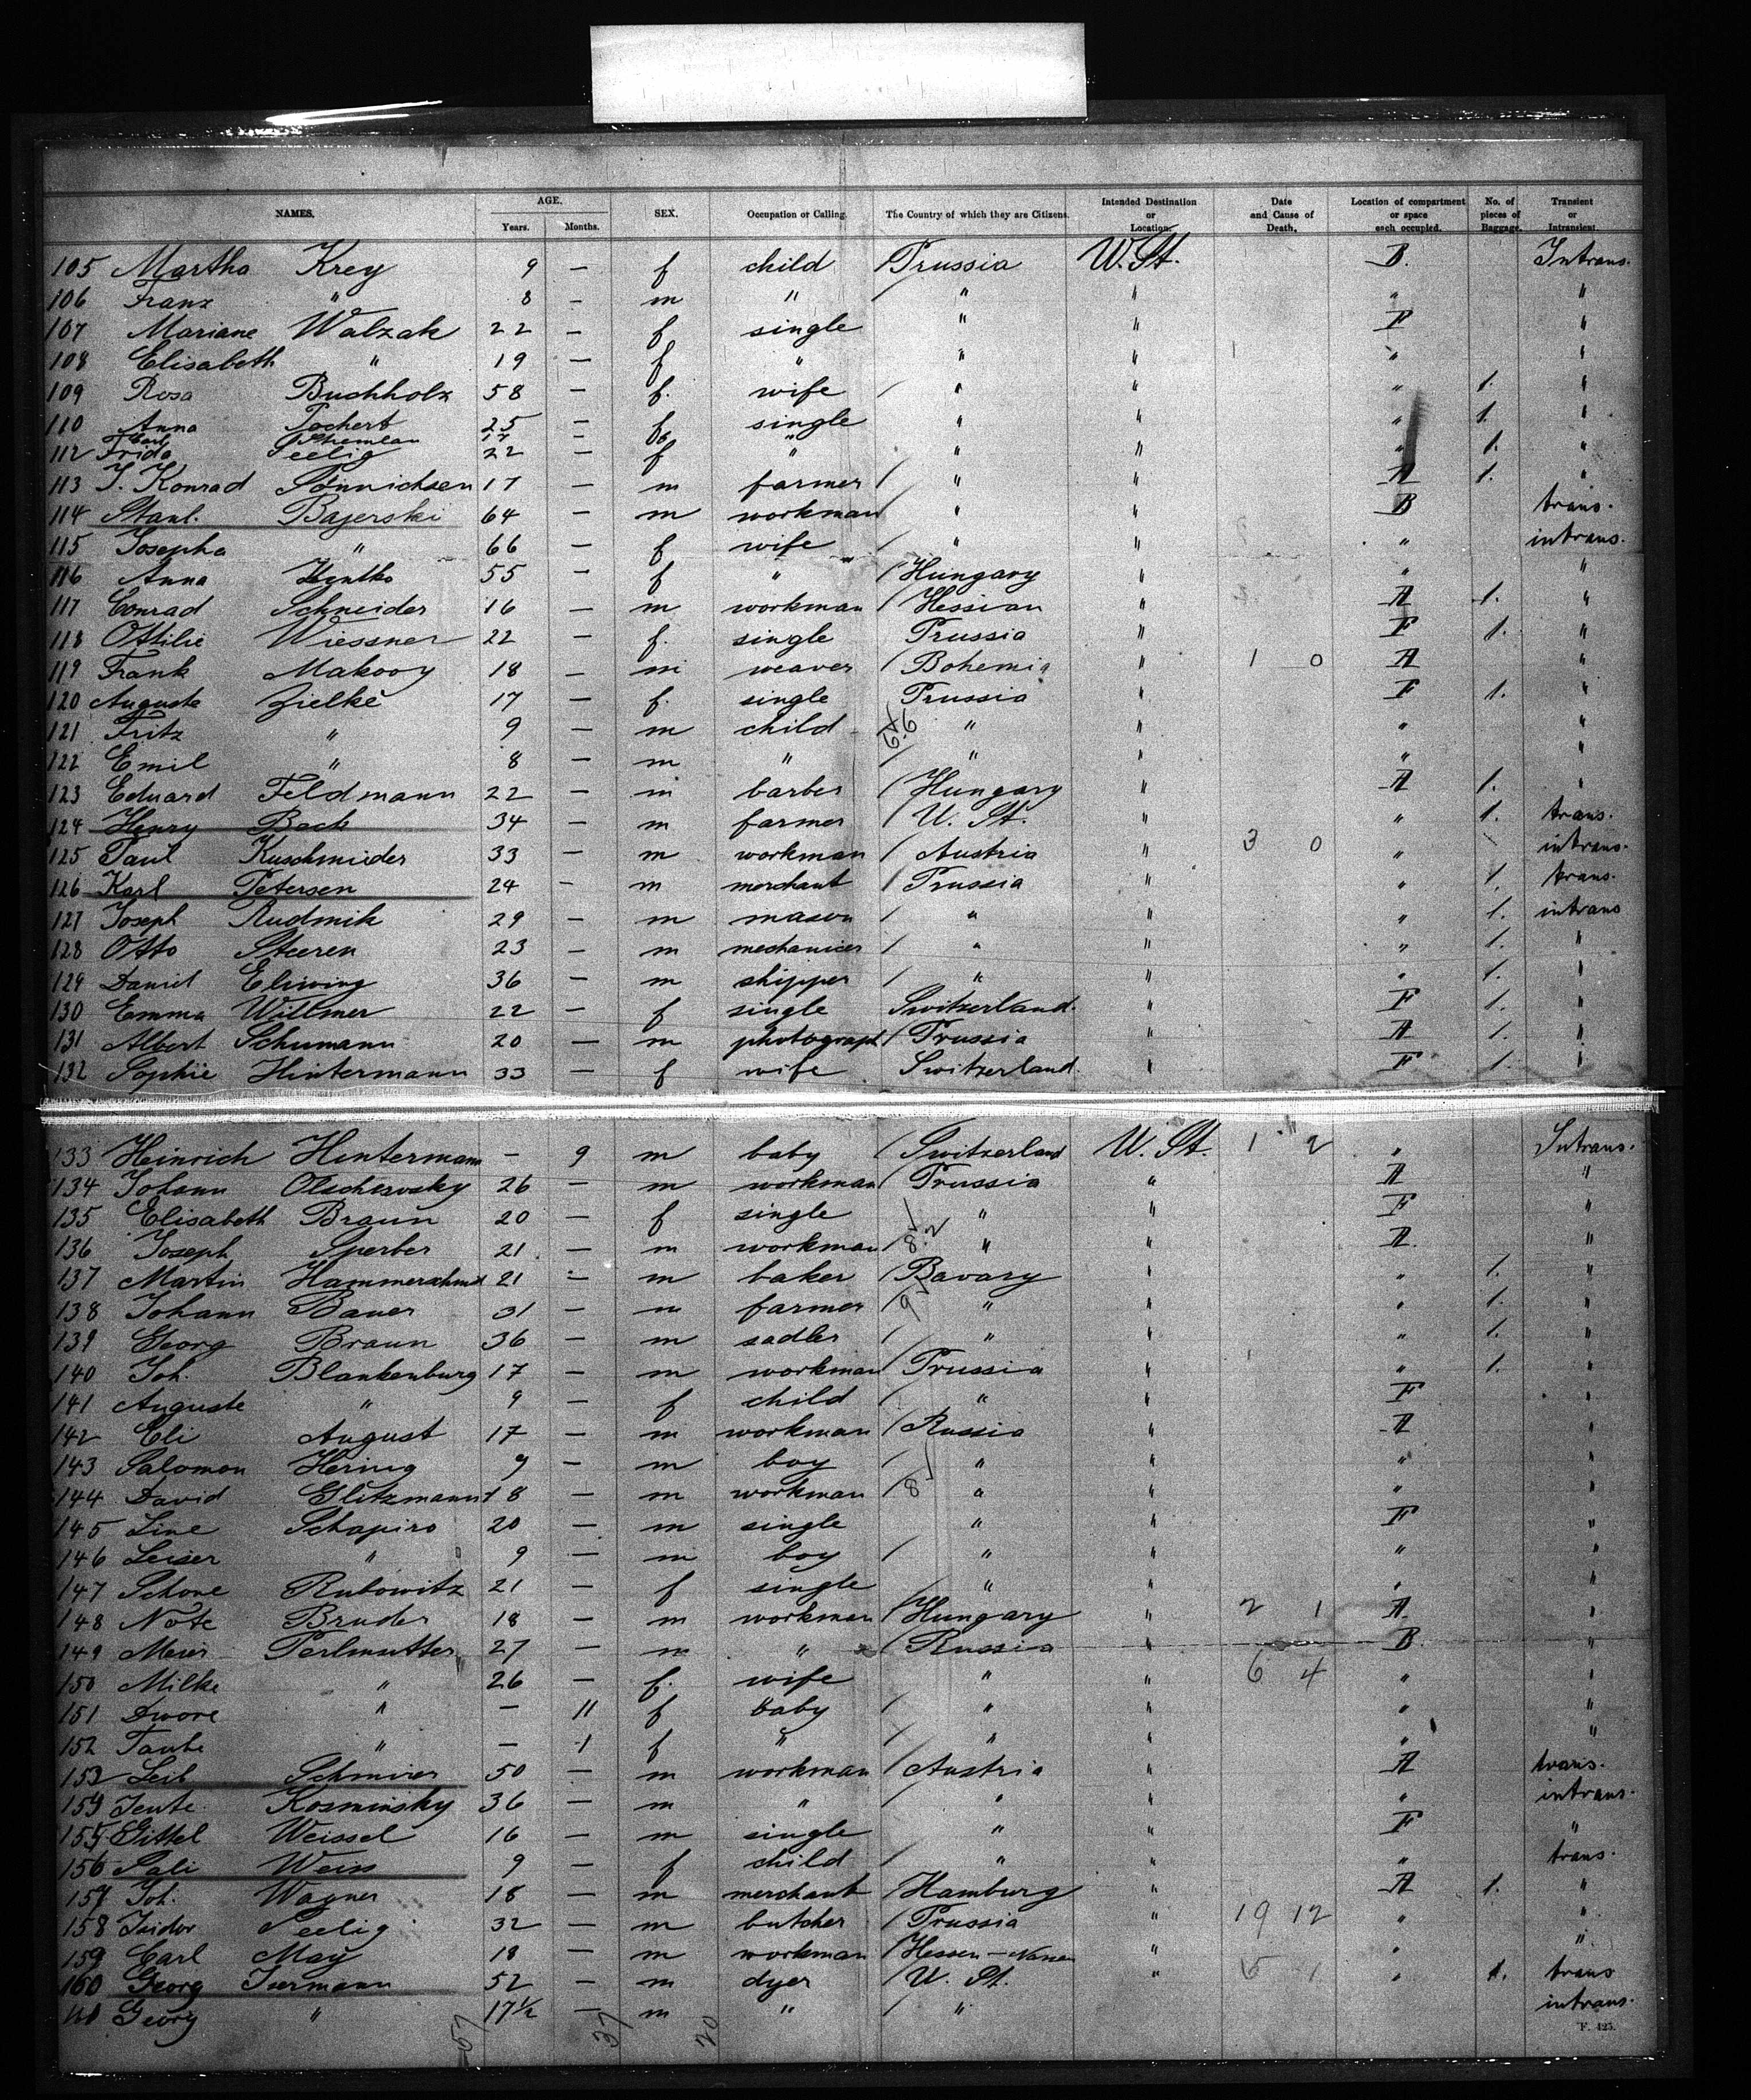 NAMES. AGE. Years. Months. SEX. Occupation or Calling. The Country of which they are Citizens. Intended Destination or Location. Date and Cause of Death. Location of compartment or space each occupied. No. of pieces of Baggage. Transient or Intransient
105 Martha Krey 9 — f child Prussia W. St. B. Intrans.
106 Franz " 8 — m " " " " "
107 Mariane Walzak 22 — f single " " F "
108 Elisabeth " 19 — f " " " " "
109 Rosa Buchholz 58 — f. wife " " " 1. "
110 Anna Pochert 25 — f single " " " 1. "
Carl 17
112 Frida Seelig 22 — f " " " " 1. "
113 J. Konrad Sönnichsen 17 — m farmer " " A 1. "
114 Stanl. Bajerski 64 — m workman " " B trans.
115 Josepha " 66 — f wife " " " intrans.
116 Anna 55 — f " Hungary " " "
117 Conrad Schneider 16 — m workman Hessian " A 1. "
118 Ottilie Wiessner 22 — f. single Prussia " F 1. "
119 Frank Makovy 18 — m weaver Bohemia " 1 0 A "
120 Auguste Zielke 17 — f. single Prussia " F 1. "
121 Fritz " 9 — m child " " " "
122 Emil " 8 — m " " " " "
123 Eduard Feldmann 22 — m barber Hungary " A 1. "
124 Henry Bock 34 — m farmer U. St. " " 1. trans.
125 Paul Kuschmieder 33 — m workman Austria " 3 0 " intrans.
126 Karl Petersen 24 — m merchant Prussia " " 1. trans.
127 Joseph Rudmik 29 — m mason " " " 1. intrans
128 Otto Steeren 23 — m mechanicer " " " 1. "
129 Daniel 36 — m shipper " " " 1. "
130 Emma Willmer 22 — f single Switzerland. " F 1. "
131 Albert Schumann 20 — m photograph Prussia " A 1. "
132 Sophie Hintermann 33 — f wife Switzerland. " F 1. "
133 Heinrich Hintermann — 9 m baby Switzerland U. St. 1 2 " Intrans.
134 Johann Olschewsky 26 — m workman Prussia " A "
135 Elisabeth Braun 20 — f single " " F "
136 Joseph Sperber 21 — m workman " " A "
137 Martin Hammerschmid 21 — m baker Bavary " " 1. "
138 Johann Bauer 31 — m farmer " " " 1. "
139 Georg Braun 36 — m sadler " " " 1. "
140 Joh. Blankenburg 17 — m workman Prussia " " 1. "
141 Auguste " 9 — f child " " F "
142 Eli August 17 — m workman Russia " A "
143 Salomon Hering 9 — m boy " " " "
144 David Glitzmann 18 — m workman " " " "
145 Line Schapiro 20 — m single " " F "
146 Leiser " 9 — m boy " " " "
147 Schone Rubowitz 21 — f single " " " "
148 Note Bruder 18 — m workman Hungary " 2 1 A "
149 Meier Perlmutter 27 — m " Russia " B. "
150 Milke " 26 — f. wife " " 6 4 " "
151 Dwore " — 11 f baby " " " "
152 Taube " — 1 f " " " " "
153 Leib Schmirer 50 — m workman Austria " A trans.
154 Jente Kosminsky 36 — m " " " " intrans.
155 Gittel Weissel 16 — m single " " F "
156 Sali Weiss 9 — f child " " " trans.
157 Joh. Wagner 18 — m merchant Hamburg " A 1. "
158 Isidor Seelig 32 — m butcher Prussia " 19 12 " "
159 Carl May 18 — m workman Hessen " " "
160 Georg Isermann 52 — m dyer U. St. " 5 1 " 1. trans
161 Georg " 17½ — m " " intrans.
F. 425.